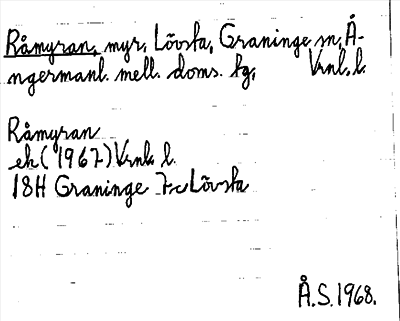 Råmyran, myr, Lövsta, Graninge sn, Å-
ngermanl. mell. doms. fg, Vrnl. l.
Råmyran
ek (1967) Vrnl. l.
18H Graninge 7c Lövsta
Å.S. 1968.